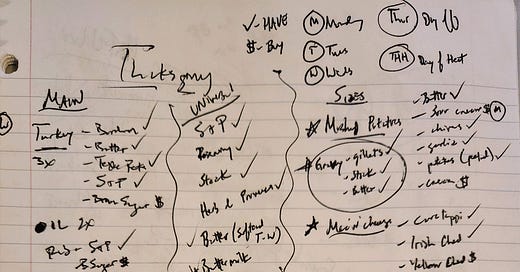 ✓- HAVE
$- Buy
(M) Monday
(T) Tues
(W) Weds
(Thur) Day of
(TAH) Day of Heat
MAIN
(W)
Turkey - Bourbon ✓
- Butter ✓
3x
- S+P ✓
- Brown Sugar $
OIL 2x
Rub - S+P ✓
B Sugar $
Universal
S+P ✓
Rosemary ✓
Stock ✓
Herb d Provence ✓
Butter (softened T-W)
Buttermilk
Sides
★ Mashed Potatoes
- Butter ✓
- Sour cream $ (M)
- chives ✓
- garlic ✓
- potatoes (peeled) ✓
- cream $
★ Gravy - giblets ✓
- Stock ✓
- Butter ✓
★ Mac n cheese
- Irish Ched ✓
- Yellow Ched $